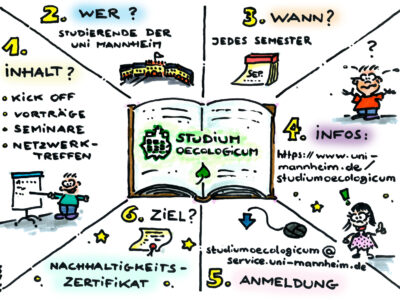 1.
INHALT?
• KICK OFF
• VORTRÄGE
• SEMINARE
• NETZWERK-
TREFFEN
2. WER?
STUDIERENDE DER
UNI MANNHEIM
3. WANN?
JEDES SEMESTER
SEP.
?
STUDIUM
OECOLOGICUM
4. INFOS:
https://www.uni-
mannheim.de/
studiumoecologicum
!
6. ZIEL?
NACHHALTIGKEITS-
ZERTIFIKAT
studiumoecologicum@
service.uni-mannheim.de
5. ANMELDUNG